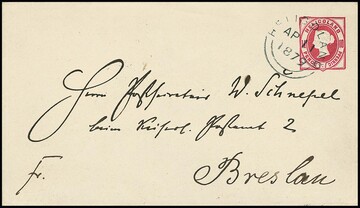 HELIGOLAND
AP
1879
Herrn Postsecretair W. Schnepel
beim Kaiserl. Postamt 2
Fr.
Breslau